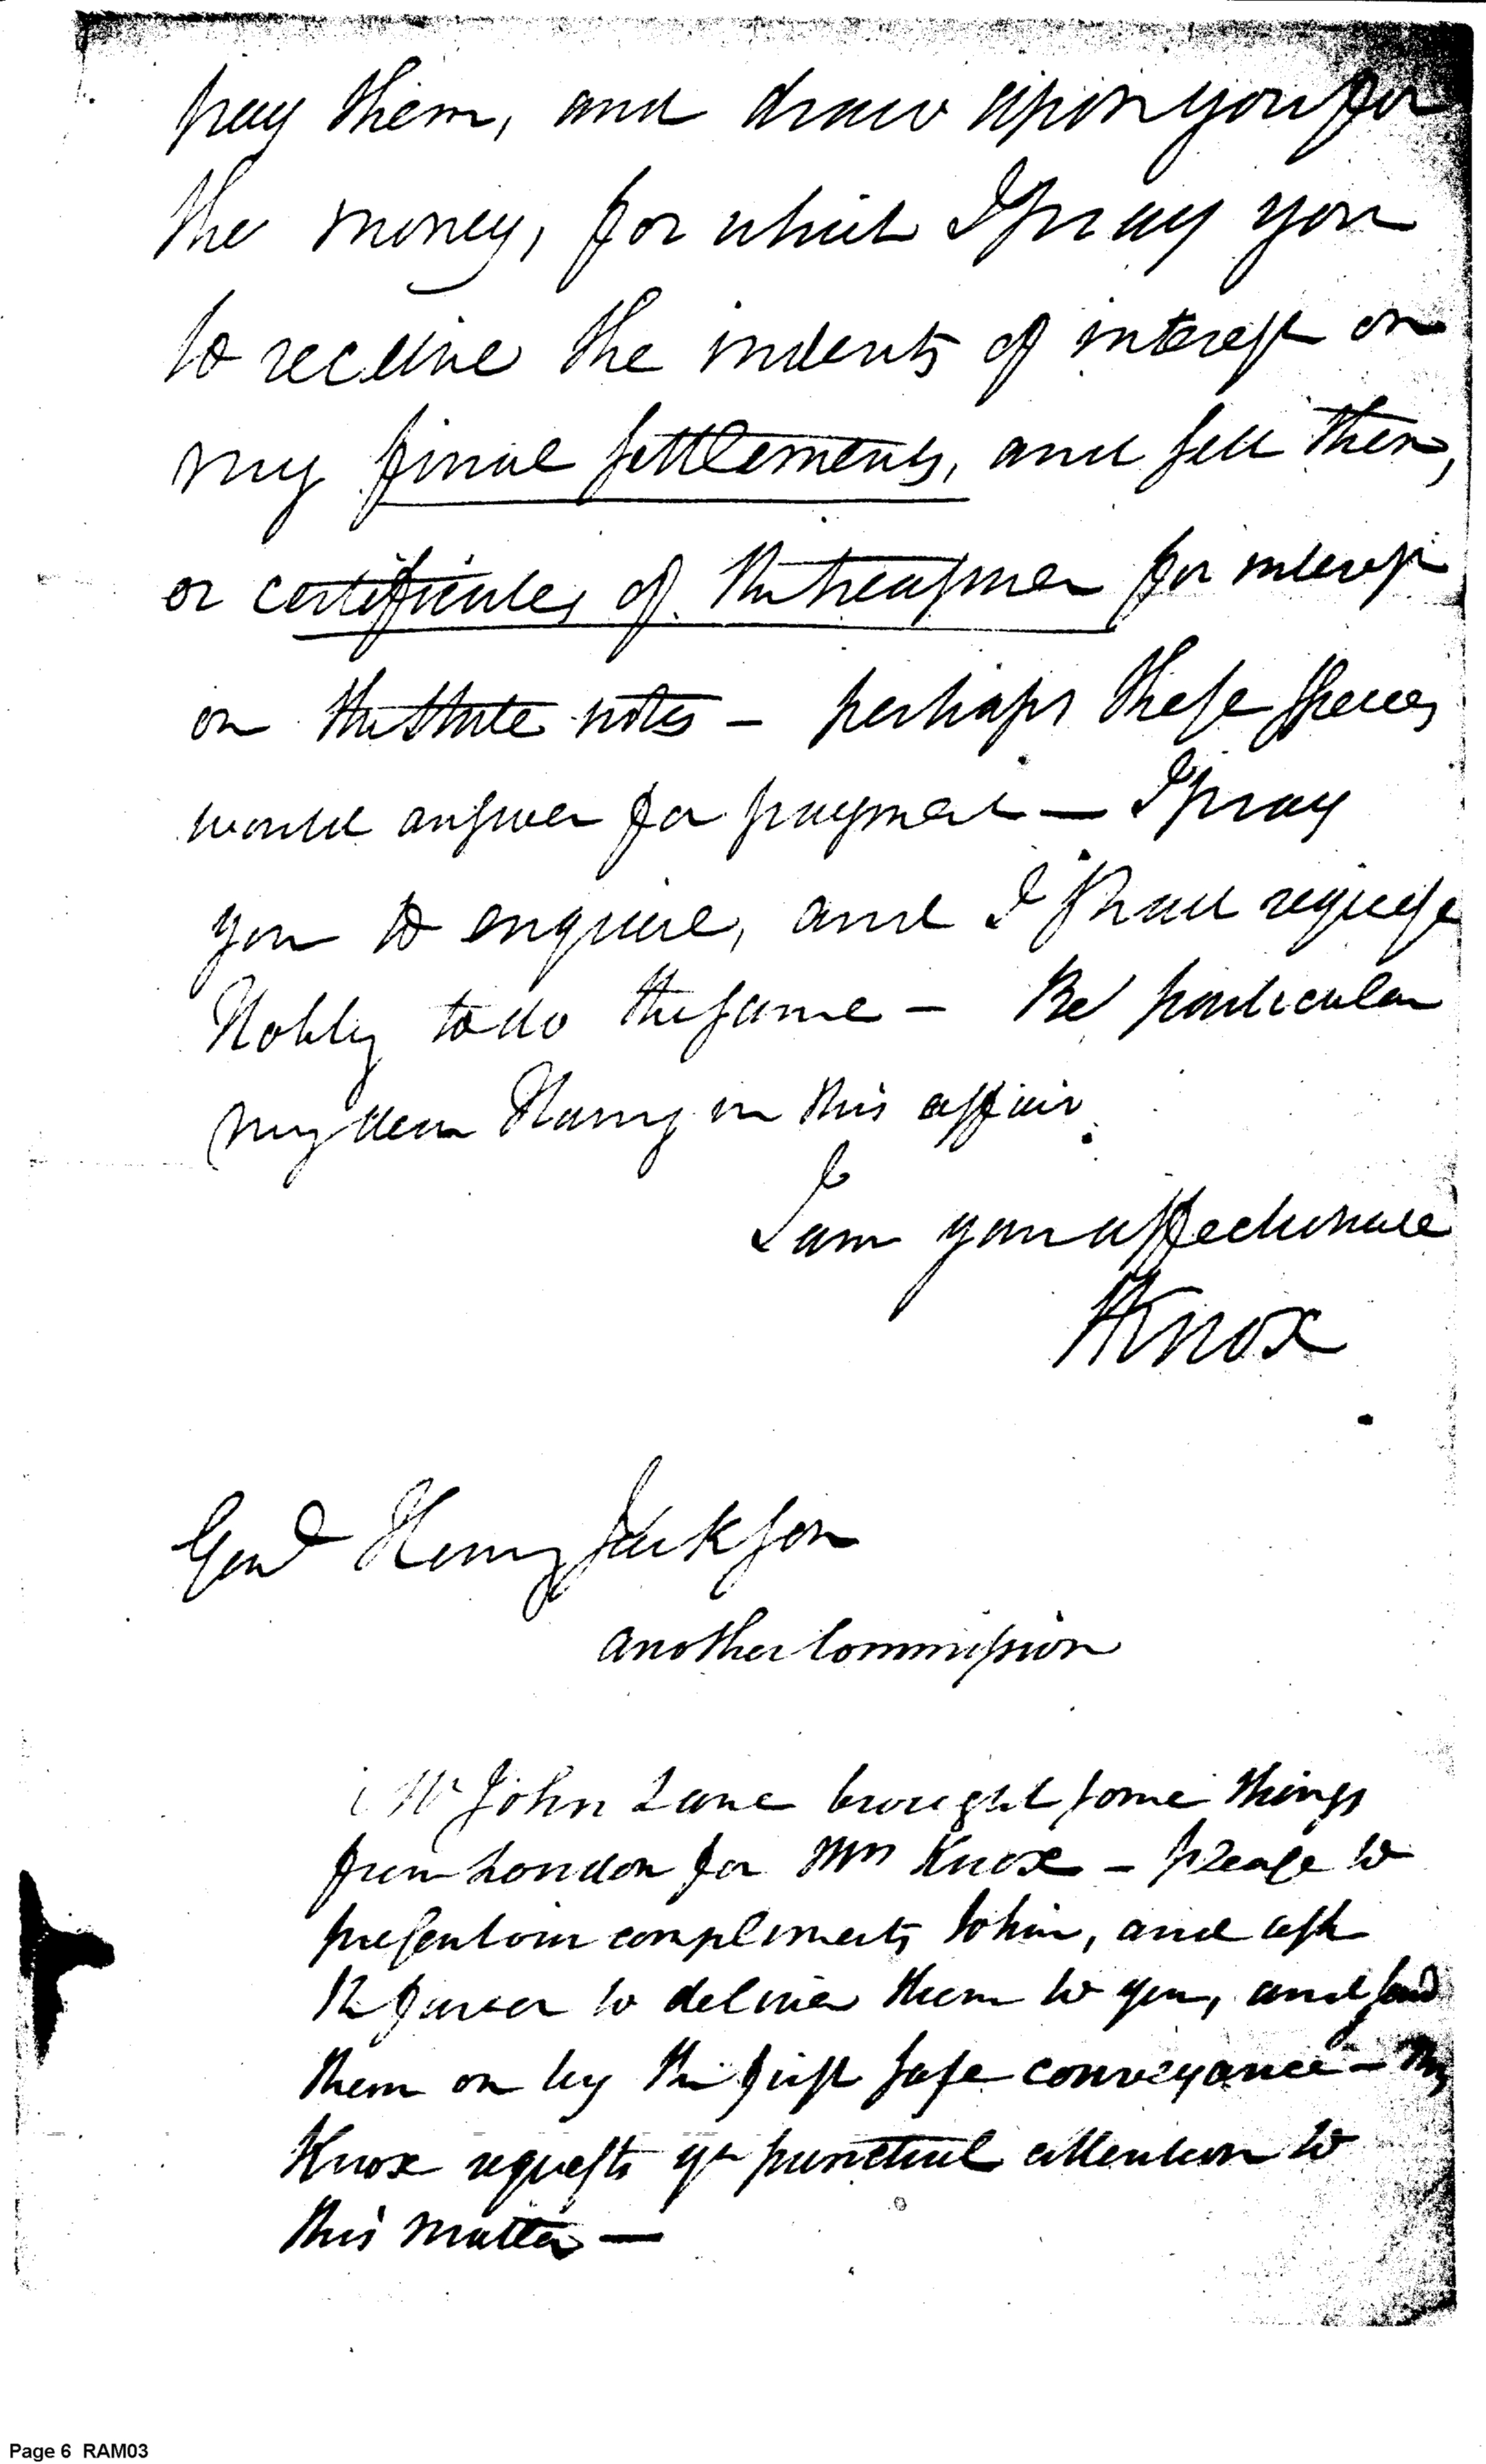 pay them, and draw upon you for
the money, for which I pray you
to receive the indents of interest on
my final settlements, and sell them,
or certificates of the treasurer for interest
on the state notes — perhaps these species
would answer for payment — I pray
you to enquire, and I shall request
Nobly to do the same — Be particular
my dear Harry in this affair.
I am your affectionate
HKnox
Genl Henry Jackson
another Commission
Mr John Lane brought some things
from London for Mrs Knox — please to
present our compliments to him, and ask
the favor to deliver them to you, and send
them on by the first safe conveyance — Mrs
Knox requests yr punctual attention to
this matter —
Page 6 RAM03